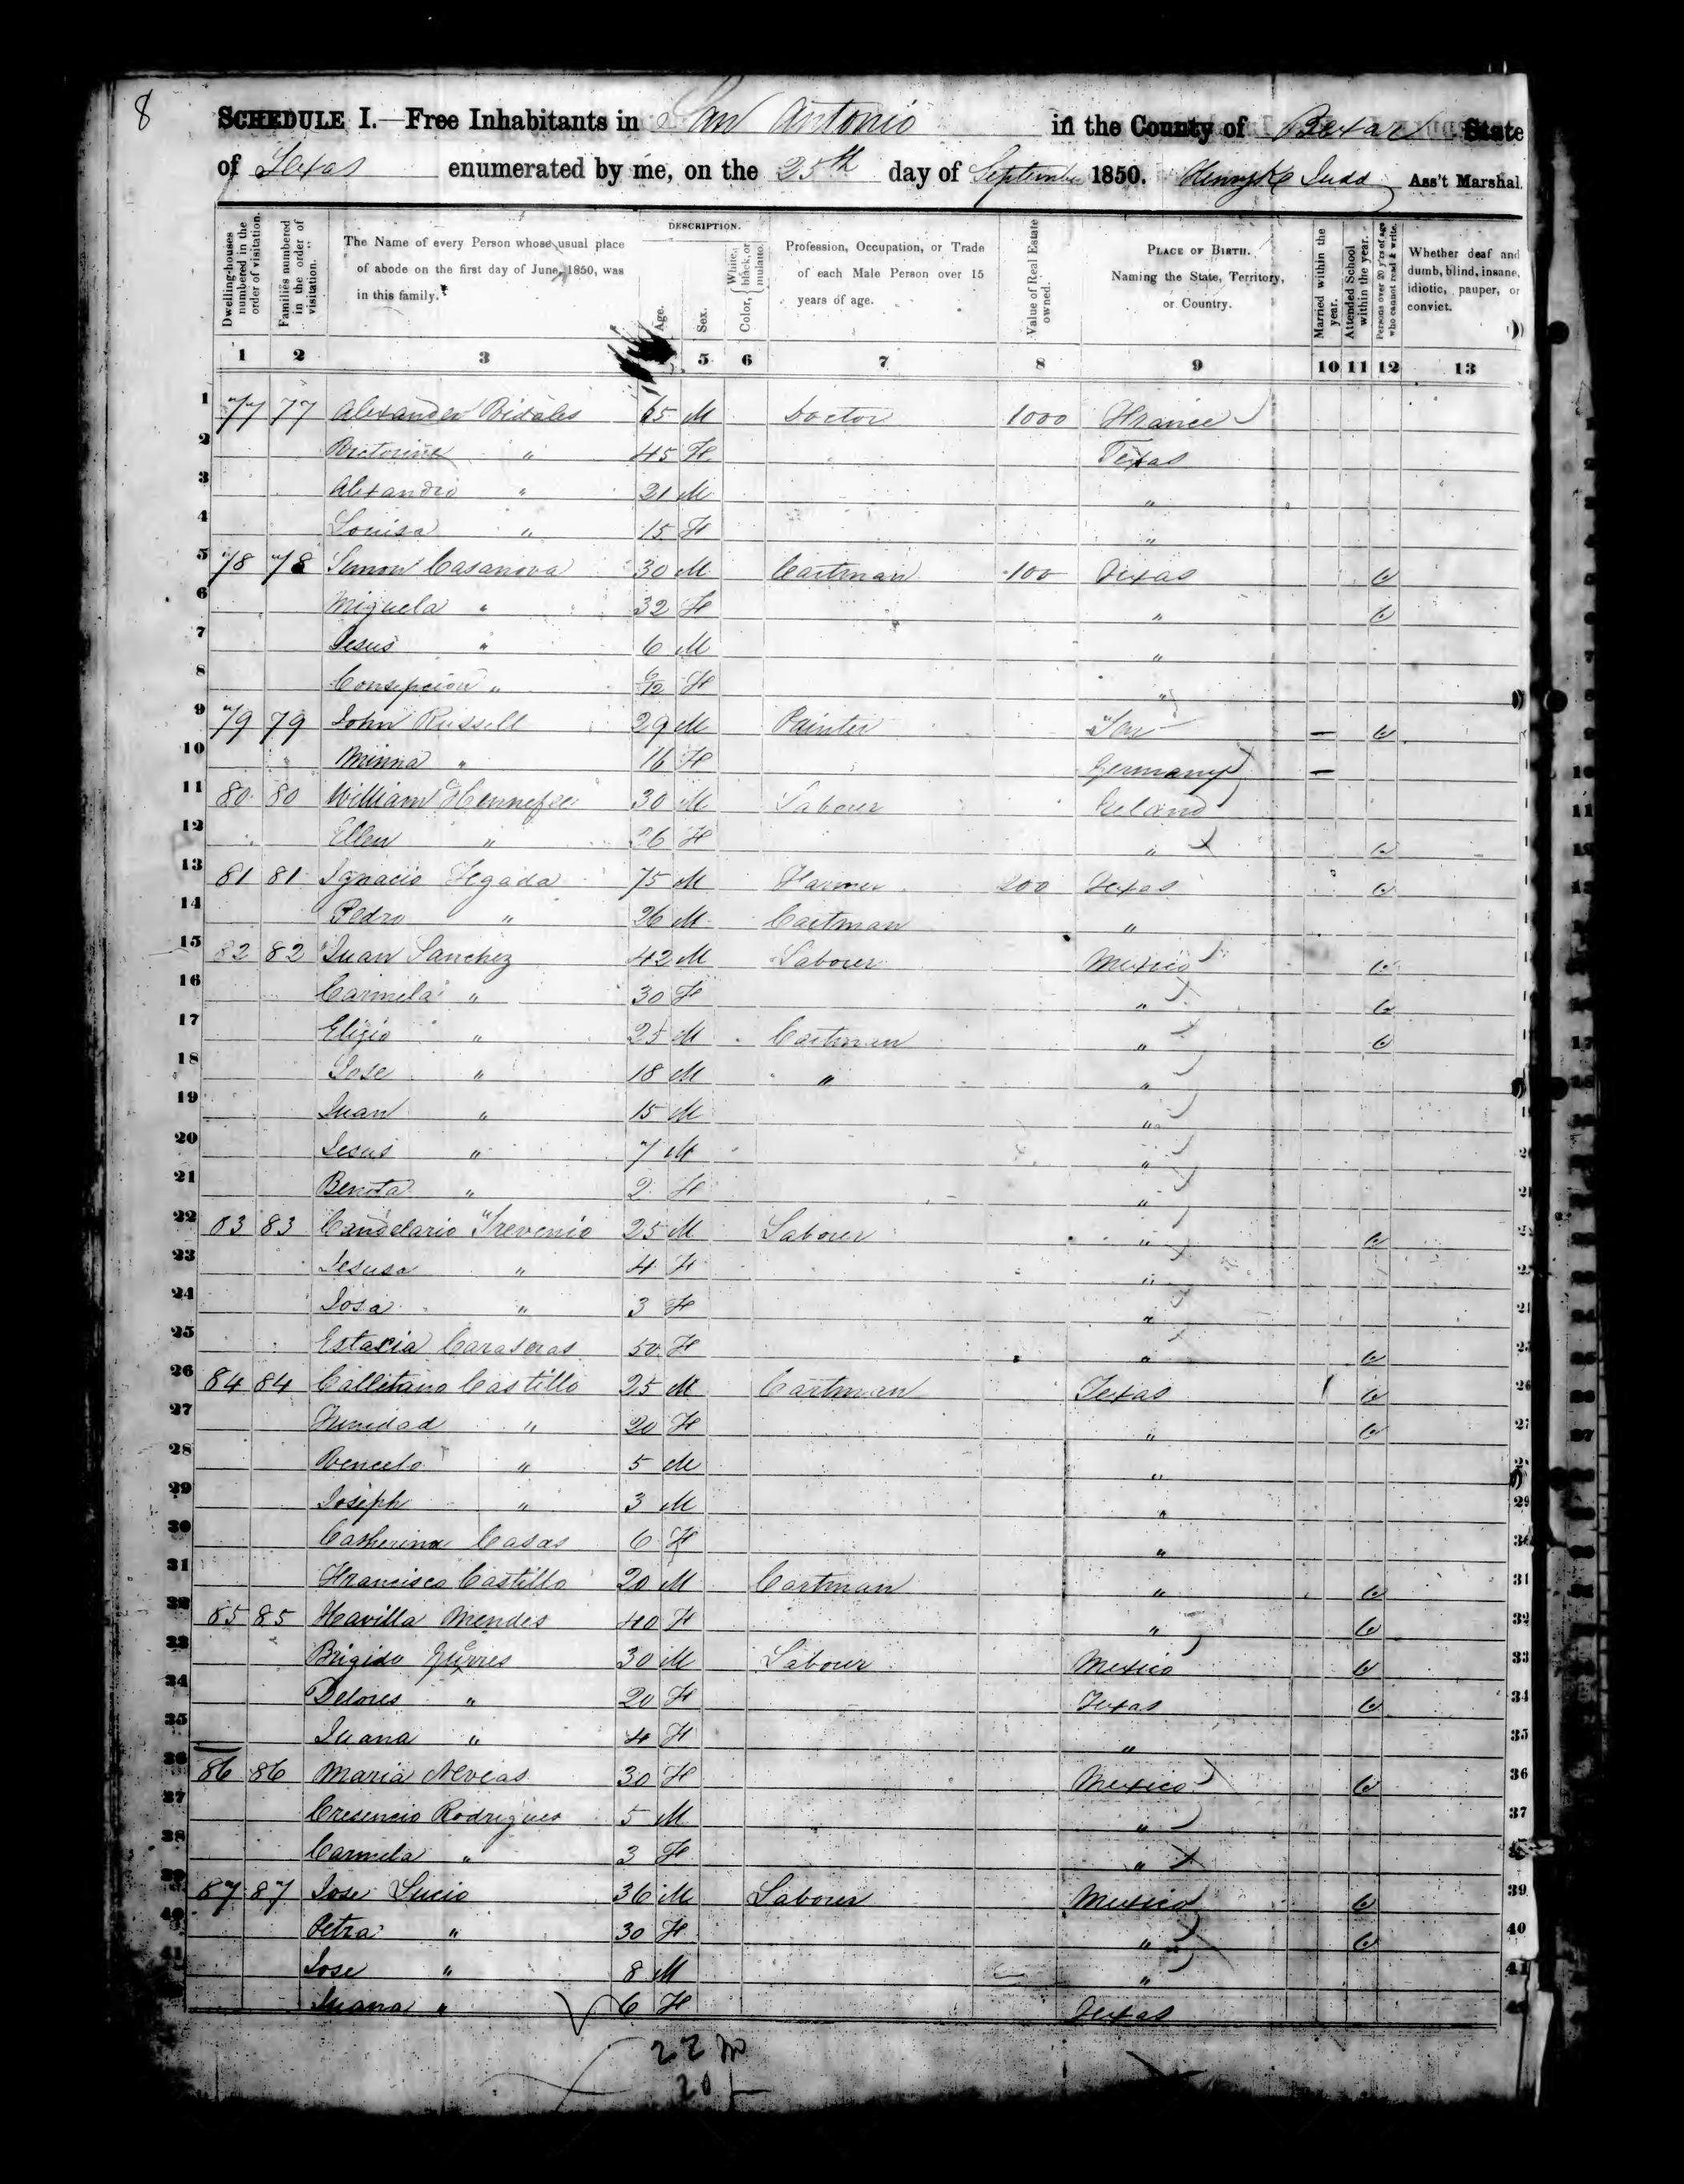 8
SCHEDULE I.—Free Inhabitants in San Antonio in the County of Bexar State
of Texas enumerated by me, on the 25th day of September 1850. Henry K Judd Ass't Marshal.
Dwelling-houses numbered in the order of visitation.
Families numbered in the order of visitation.
The Name of every Person whose usual place of abode on the first day of June, 1850, was in this family.
DESCRIPTION.
Age.
Sex.
Color, White, black, or mulatto.
Profession, Occupation, or Trade of each Male Person over 15 years of age.
Value of Real Estate owned.
PLACE OF BIRTH. Naming the State, Territory, or Country.
Married within the year.
Attended School within the year.
Persons over 20 y'rs of age who cannot read & write.
Whether deaf and dumb, blind, insane, idiotic, pauper, or convict.
1 2 3 5 6 7 8 9 10 11 12 13
1 77 77 Alexander Vidales 65 M Doctor 1000 France
2 Victorine " 45 F Texas
3 Alexandro " 21 M "
4 Louisa " 15 F "
5 78 78 Simon Casanova 30 M Cartman 100 Texas
6 Miguela " 32 F "
7 Jesus " 6 M "
8 Consepcion " 6/12 F "
9 79 79 John Russell 29 M Painter
10 Minna " 16 F Germany
11 80 80 William Hennesee 30 M Labourer Ireland
12 Ellen " 26 F "
13 81 81 Ignacio 75 M Farmer 200 Texas
14 Pedro " 26 M Cartman "
15 82 82 Juan Sanchez 42 M Laborer Mexico
16 Carmela " 30 F "
17 Eligio " 25 M Cartman "
18 Jose " 18 M " "
19 Juan " 15 M "
20 Jesus " 7 M "
21 Benita " 2 F "
22 83 83 Candelario Trevenio 25 M Laborer "
23 Jesusa " 4 F "
24 Josa " 3 F "
25 Estacia 50 F "
26 84 84 Calletano Castillo 25 M Cartman Texas
27 Trinidad " 20 F "
28 " 5 M "
29 Joseph " 3 M "
30 Catherina Casas 6 F "
31 Francisco Castillo 20 M Cartman "
32 85 85 Havilla Mendes 40 F "
33 Brigido 30 M Labourer Mexico
34 Delores " 20 F Texas
35 Juana " 4 F "
36 86 86 Maria Neveas 30 F Mexico
37 Cresencio Rodrigues 5 M "
38 Carmela " 3 F "
39 87 87 Jose Lucio 36 M Labourer Mexico
40 Petra " 30 F "
41 Jose " 8 M "
42 Juana " 6 F Texas
22 m
20 f